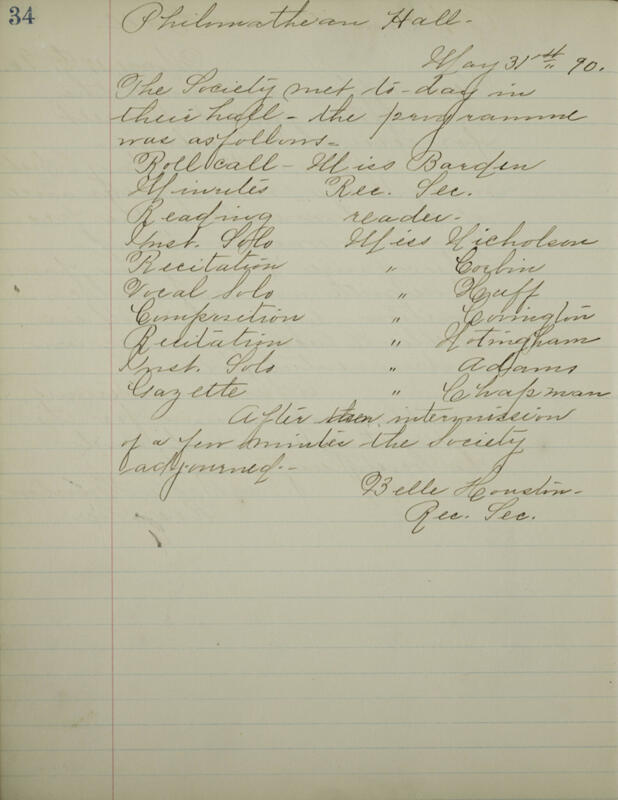 34
Philomathean Hall-
May 31st 90.
The Society met to-day in
their hall - the programme
was as follows-
Roll call - Miss Barden
Minutes Rec. Sec.
Reading reader-
Inst. Solo Miss Nicholson
Recitation " Corbin
Vocal Solo " Huff
Composition " Covington
Recitation " Hotingham
Inst. Solo " Adams
Gazette " Chapman
After intermission
of a few minutes the Society
adjourned.-
Belle Houston-
Rec. Sec.